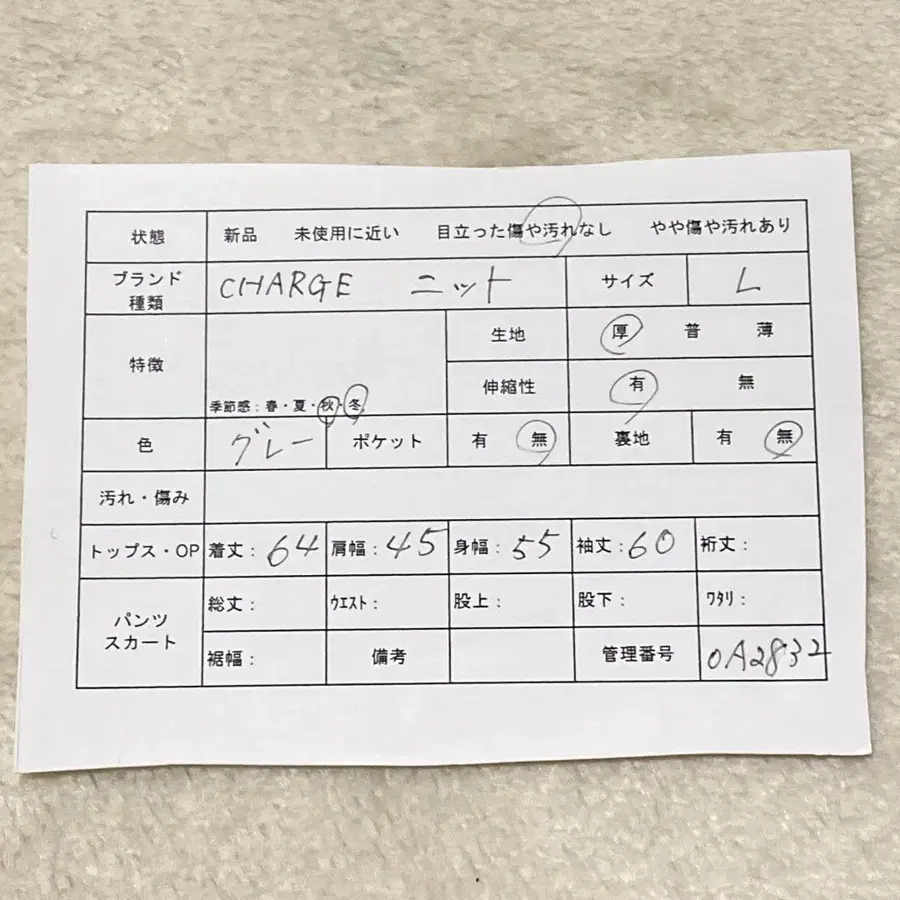 状態 新品 未使用に近い 目立った傷や汚れなし やや傷や汚れあり
ブランド 種類 CHARGE ニット サイズ L
特徴 生地 厚 普 薄
伸縮性 有 無
季節感：春・夏・秋・冬
色 グレー ポケット 有 無 裏地 有 無
汚れ・傷み
トップス・OP 着丈：64 肩幅：45 身幅：55 袖丈：60 裄丈：
パンツ スカート 総丈： ウエスト： 股上： 股下： ワタリ：
裾幅： 備考 管理番号 0A2832